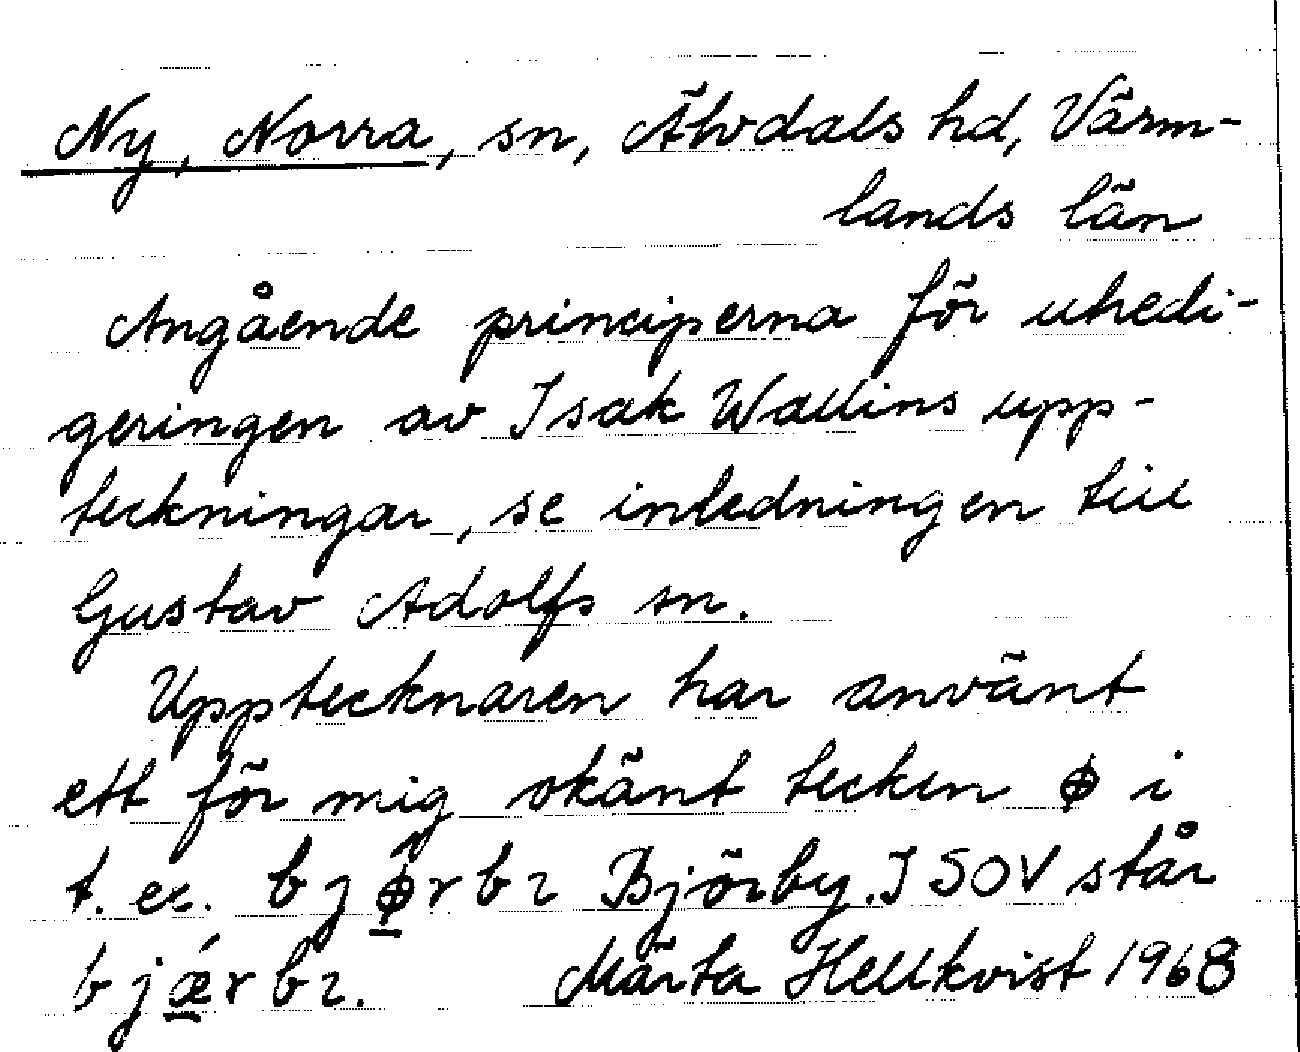 Ny, Norra, sn, Älvdals hd, Värm-
lands län
Angående principerna för utredi-
geringen av Isak Wallins upp-
teckningar, se inledningen till
Gustav Adolfs sn.
Upptecknaren har använt
ett för mig okänt tecken ɸ i
t. ex. b j ɸ́ r b ɿ Björby. I SOV står
b j ǽ r b ɿ. Märta Hellkvist 1968